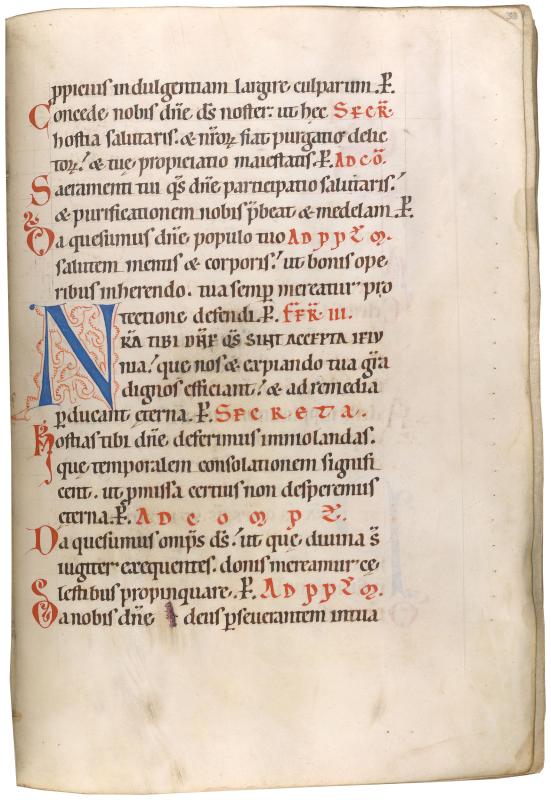 ppicius indulgentiam largire culparum. P.
Concede nobis dñe ds noster. ut hec SECR̄
hostia salutaris. & nr̄oꝝ fiat purgatio delic
toꝝ. & tue propiciatio maiestatis. P. AD CŌ.
Sacramenti tui qs dñe participatio salutaris.
& purificationem nobis p̄beat & medelam. P.
Da quesumus dñe populo tuo AD PPLM.
salutem mentis & corporis. ut bonis ope
ribus inherendo. tua semp mereatur pro
tectione defendi. P. FR̄ III.
NR̄A TIBI DÑE QS SINT ACCEPTA IEIU
nia. que nos & expiando tua gr̄a
dignos efficiant. & ad remedia
ꝑducant eterna. P. SECRETA.
Hostias tibi dñe deferimus immolandas.
que temporalem consolationem signifi
cent. ut ꝓmissa certius non desperemus
eterna. P. AD COMPL.
Da quesumus omps ds. ut que diuina s̄
iugiter exequentes. donis mereamur ce
lestibus propinquare. P. AD PPLM.
Da nobis dñe deus ꝑseuerantem in tua